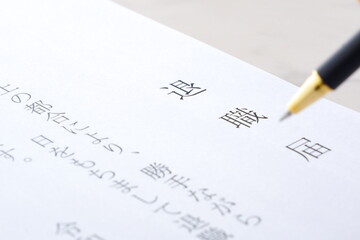 退職届
上の都合により、勝手ながら
日をもちまして退職
す。
令